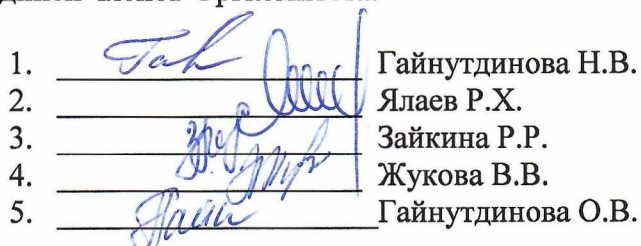 1. Гайнутдинова Н.В.
2. Ялаев Р.Х.
3. Зайкина Р.Р.
4. Жукова В.В.
5. Гайнутдинова О.В.